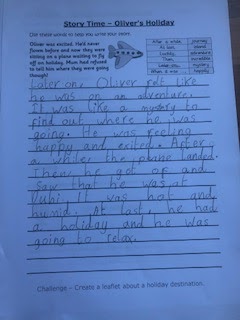 Story Time – Oliver's Holiday
Use these words to help you write your story.
Oliver was excited. He'd never
flown before and now they were
sitting on a plane waiting to fly
off on holiday. Mum had refused
to tell him where they were going
though!
After a while, journey
At last, island
adventure
Luckily,
Then, incredible
Later on, mystery
When it was happily
Later on, Oliver felt like
he was on an adventure.
It was like a mystery to
find out where he was
going. He was feeling
happy and exited. After
a while, the plane landed.
Then he got of and
saw that he was at
It was hot and
humid. At last, he had
a holiday and he was
going to relax.
Challenge – Create a leaflet about a holiday destination.